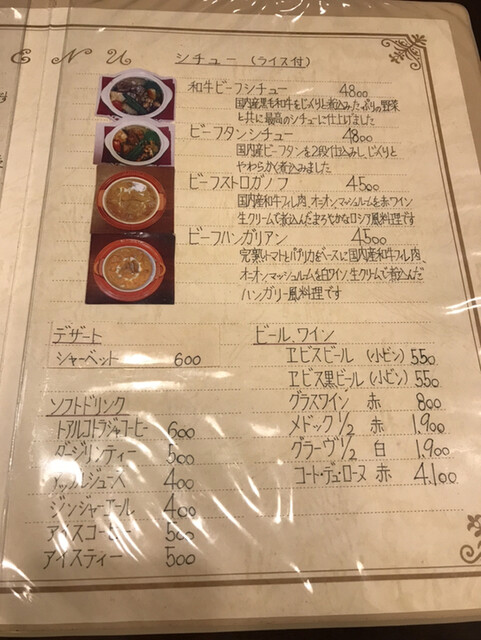 ENU
シチュー (ライス付)
和牛ビーフシチュー 4800
国内産黒毛和牛をじっくりと煮込みたっぷりの野菜
と共に最高のシチューに仕上げました
ビーフタンシチュー 4800
国内産ビーフタンを2段仕込みし、じっくりと
やわらかく煮込みました
ビーフストロガノフ 4500
国内産和牛フィレ肉、オニオンマッシュルームを赤ワイン
生クリームで煮込んだまろやかなロシア風料理です
ビーフハンガリアン 4500
完熟トマトとパプリカをベースに国内産和牛フィレ肉、
オニオンマッシュルームを白ワイン、生クリームで煮込んだ
ハンガリー風料理です
デザート
シャーベット 600
ソフトドリンク
トアルコトラジャコーヒー 600
ダージリンティー 500
アップルジュース 400
ジンジャーエール 400
アイスコーヒー 500
アイスティー 500
ビール、ワイン
ヱビスビール (小ビン) 550
ヱビス黒ビール (小ビン) 550
グラスワイン 赤 800
メドック 1/2 赤 1,900
グラーヴ 1/2 白 1,900
コート・デュ・ローヌ 赤 4,100